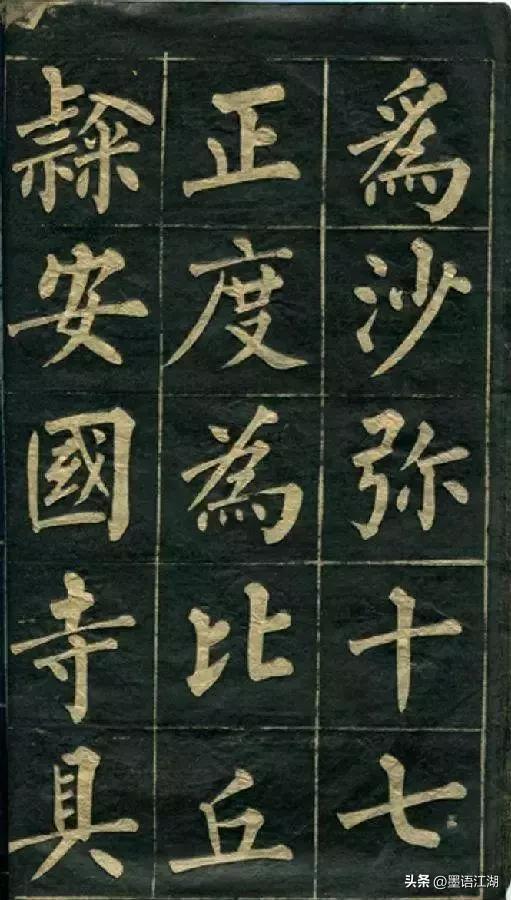 爲沙弥十七
正度為比丘
隸安國寺具
头条 @墨语江湖